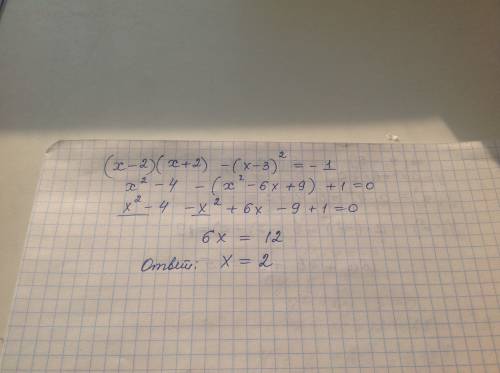 (x-2)(x+2) -(x-3)² = -1
x²-4 -(x²-6x+9) +1=0
x²-4 -x²+6x -9+1=0
6x = 12
Ответ: x = 2